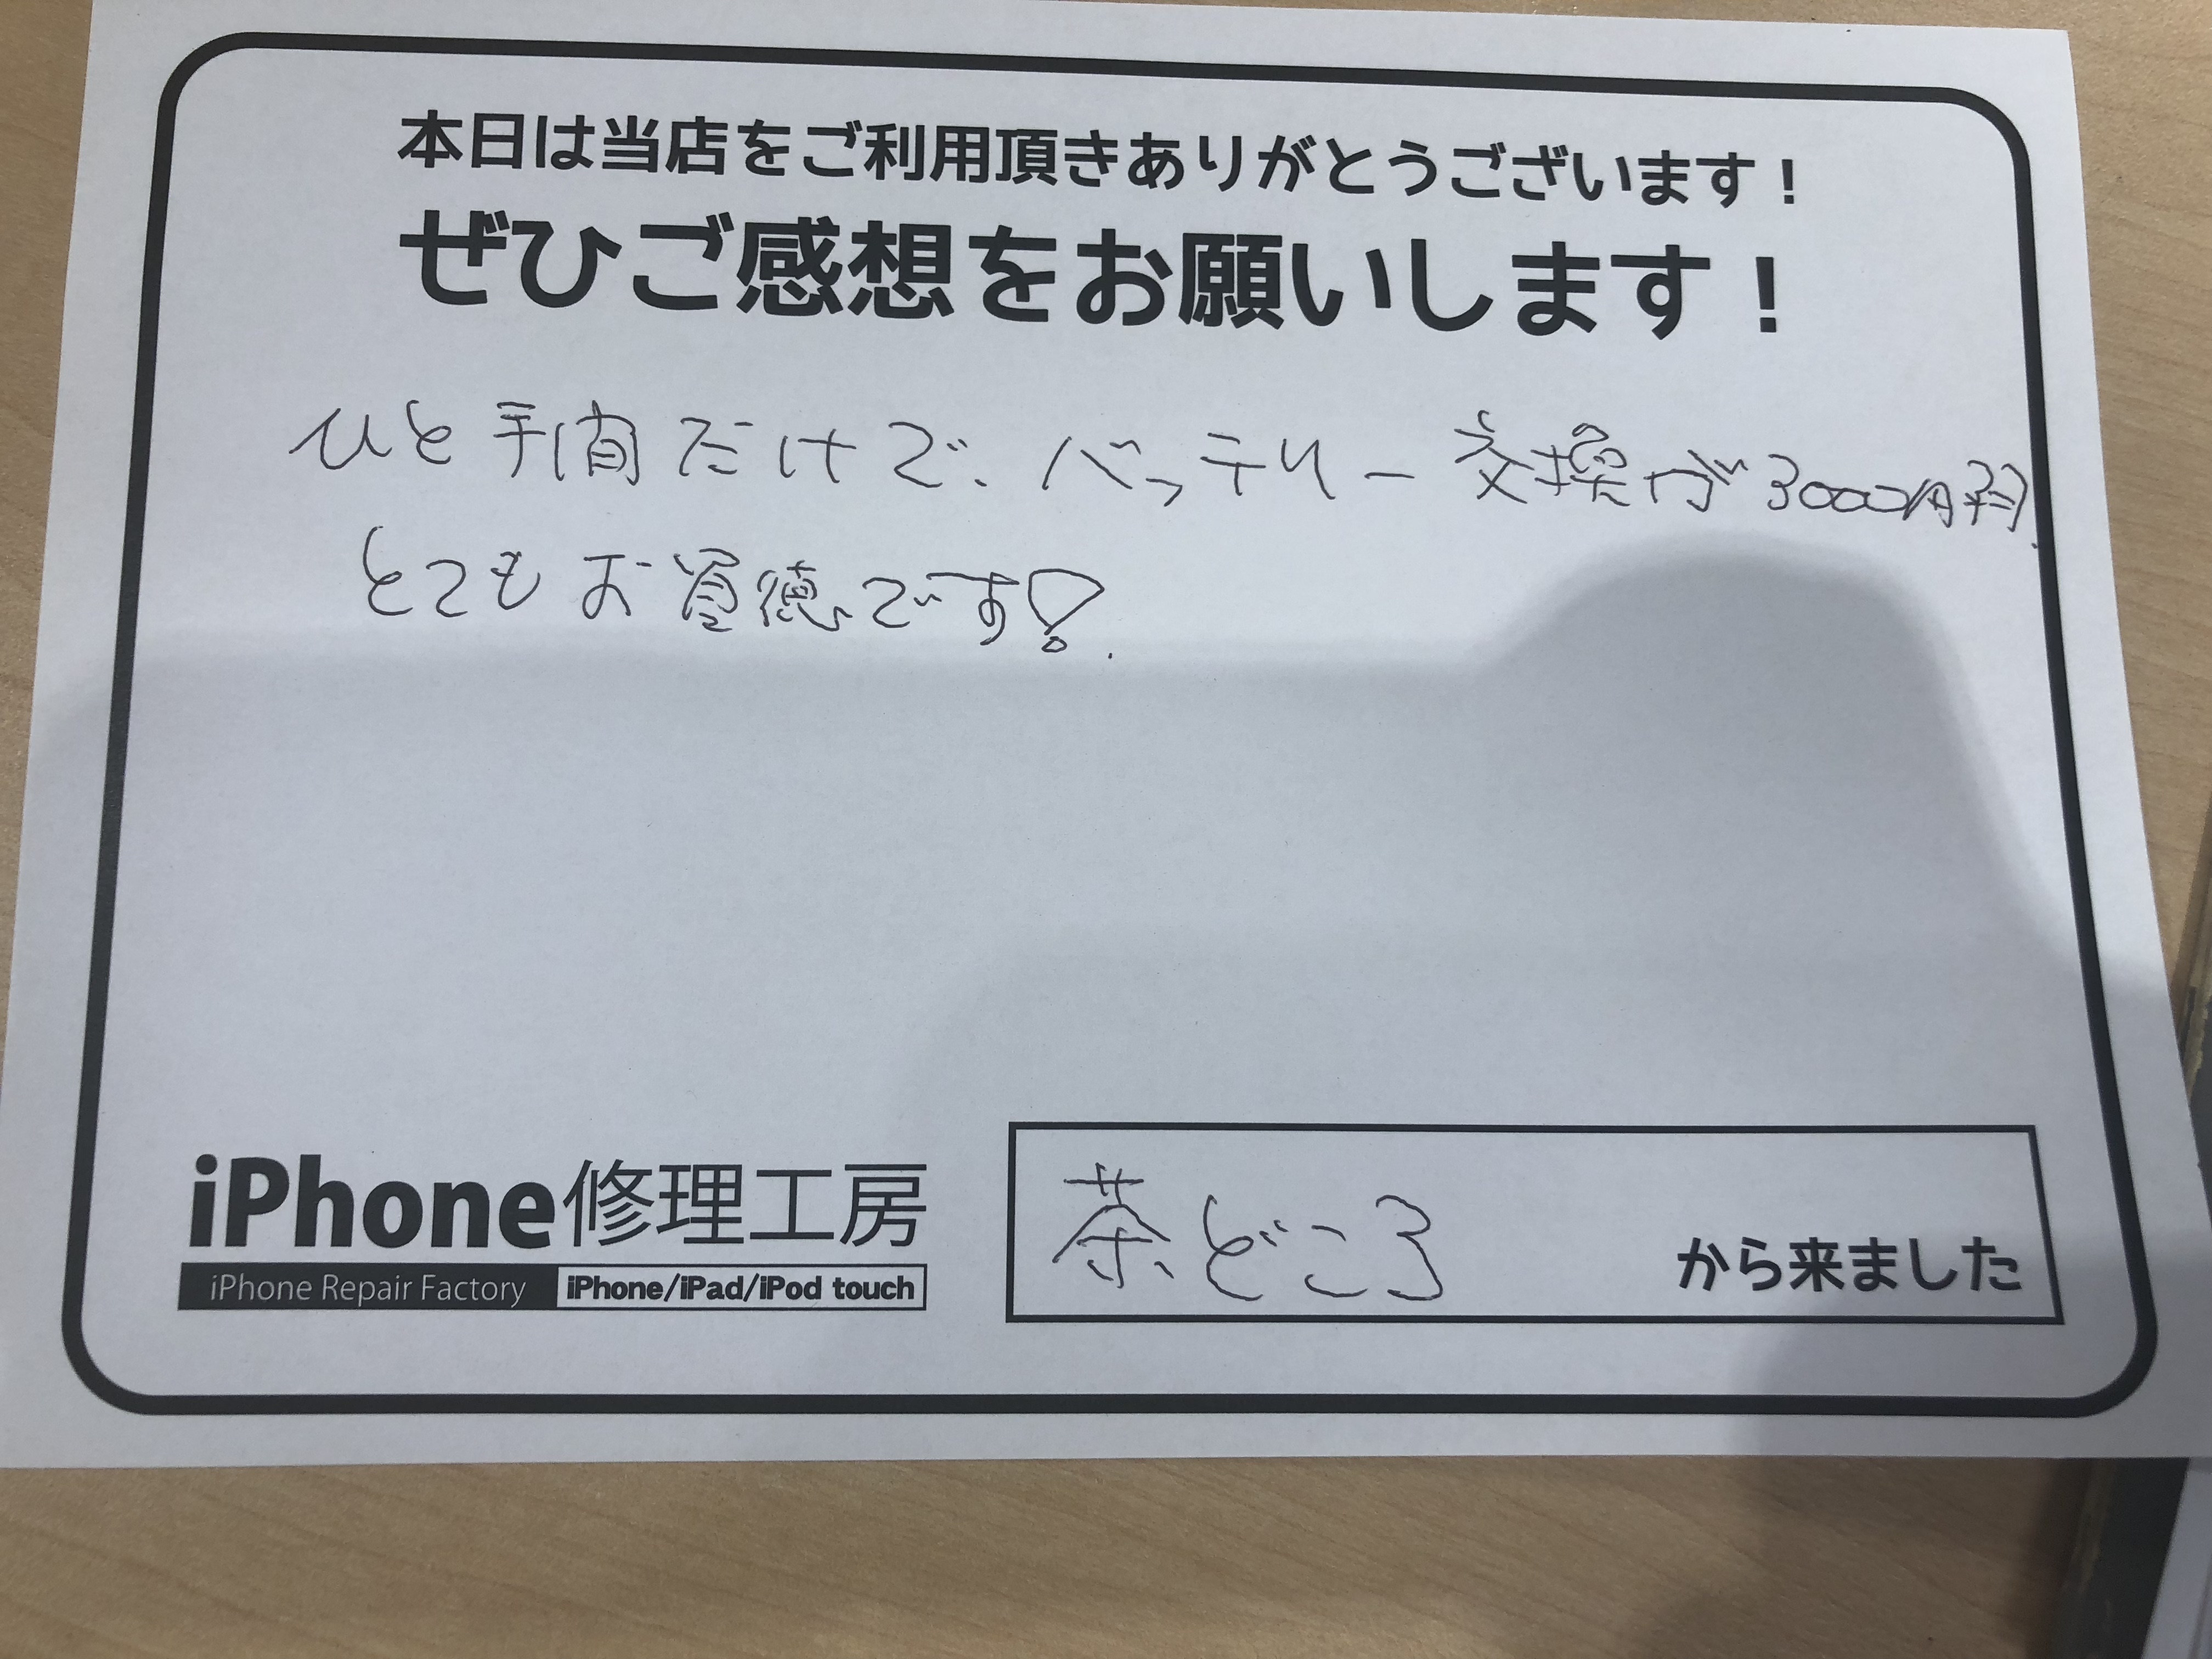 本日は当店をご利用頂きありがとうございます！
ぜひご感想をお願いします！
ひと手間だけで、バッテリー交換が3000円、
とてもお買徳です！
茶どころ から来ました
iPhone修理工房
iPhone Repair Factory iPhone/iPad/iPod touch